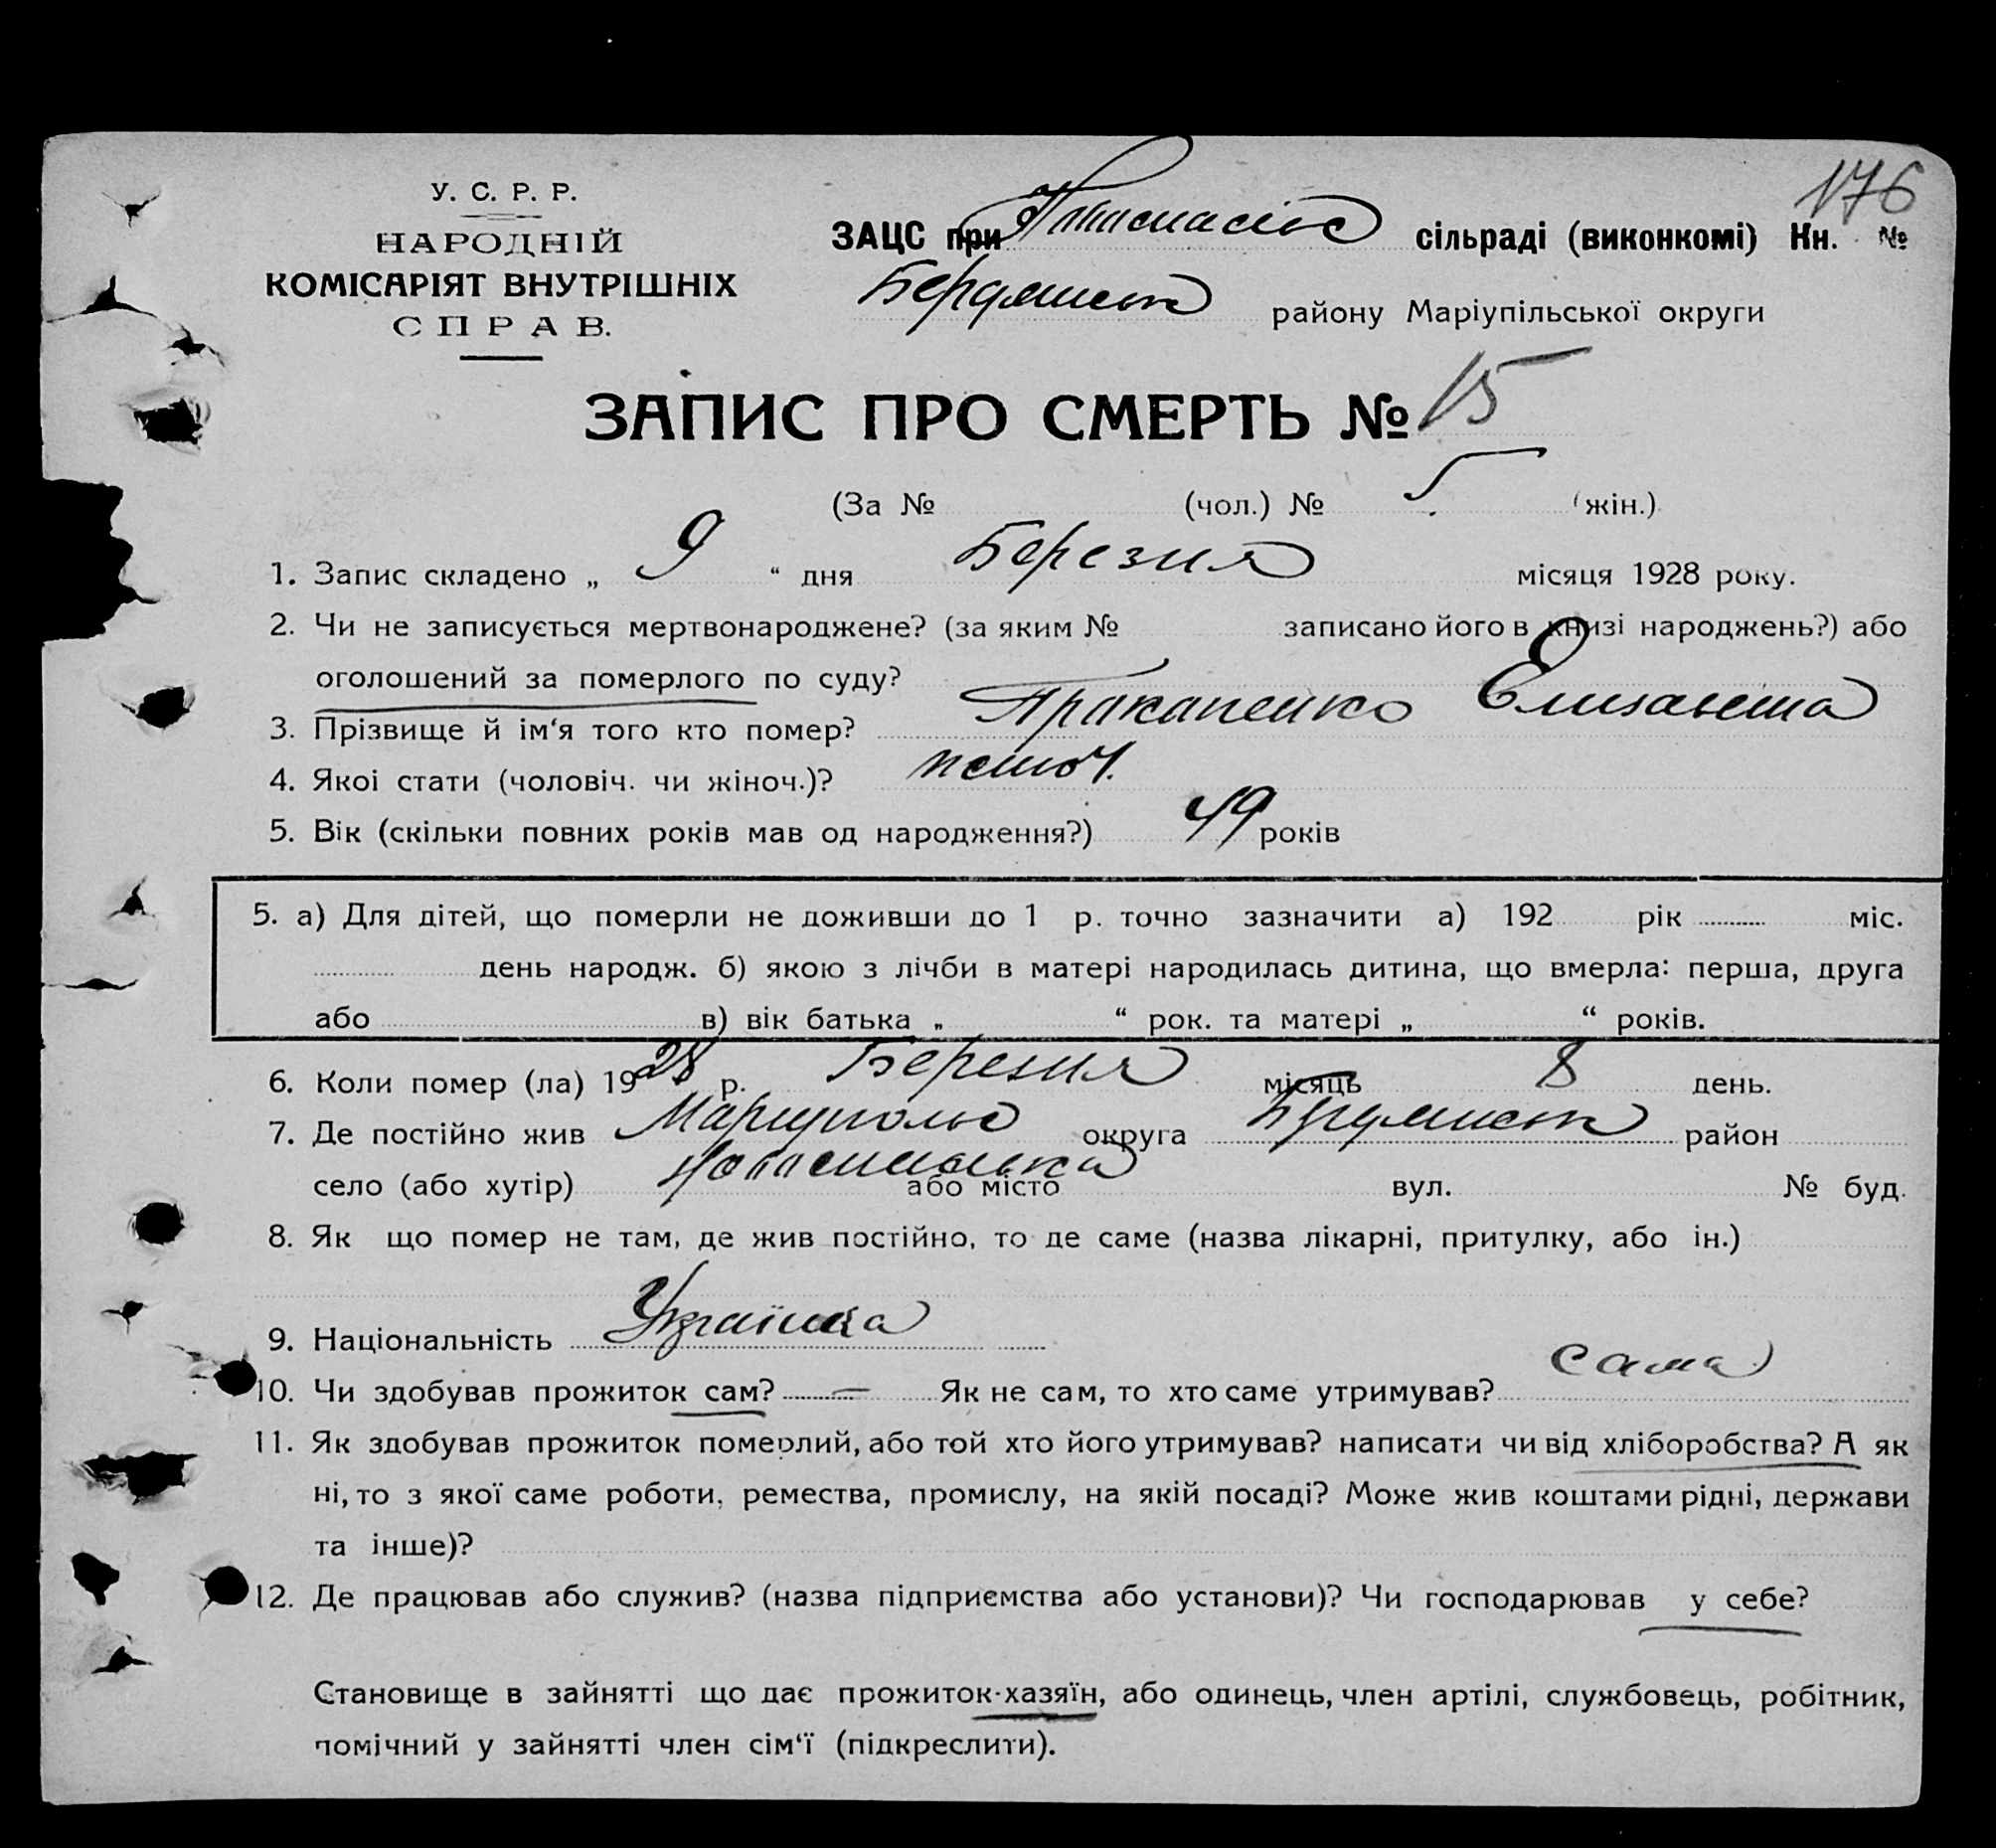 176
У. С. Р. Р.
НАРОДНІЙ
КОМІСАРІЯТ ВНУТРІШНІХ
СПРАВ.
ЗАЦС при сільраді (виконкомі) Кн. №
Бердянськ району Маріупільської округи
ЗАПИС ПРО СМЕРТЬ № 15
(За № (чол.) № 5 (жін.)
1. Запис складено „ 9 “ дня Березня місяця 1928 року.
2. Чи не записується мертвонароджене? (за яким № записано його в книзі народжень?) або
оголошений за померлого по суду?
3. Прізвище й ім‘я того кто помер? Пракапенко Елизавета
4. Якоі стати (чоловіч. чи жіноч.)?
5. Вік (скільки повних років мав од народження?) 49 років
5. а) Для дітей, що померли не доживши до 1 р. точно зазначити а) 192 рік міс.
день народж. б) якою з лічби в матері народилась дитина, що вмерла: перша, друга
або в) вік батька „ “ рок. та матері „ “ років.
6. Коли помер (ла) 1928 р. Березня місяць 8 день.
7. Де постійно жив Маріуполь округа Бердянськ район
село (або хутір) або місто вул. № буд.
8. Як що помер не там, де жив постійно, то де саме (назва лікарні, притулку, або ін.)
9. Національність Українка
10. Чи здобував прожиток сам? — Як не сам, то хто саме утримував? сама
11. Як здобував прожиток померлий, або той хто його утримував? написати чи від хліборобства? А як
ні, то з якої саме роботи, ремества, промислу, на якій посаді? Може жив коштами рідні, держави
та інше)?
12. Де працював або служив? (назва підприємства або установи)? Чи господарював у себе?
Становище в зайнятті що дає прожиток-хазяїн, або одинець, член артілі, службовець, робітник,
помічний у зайнятті член сім‘ї (підкреслити).